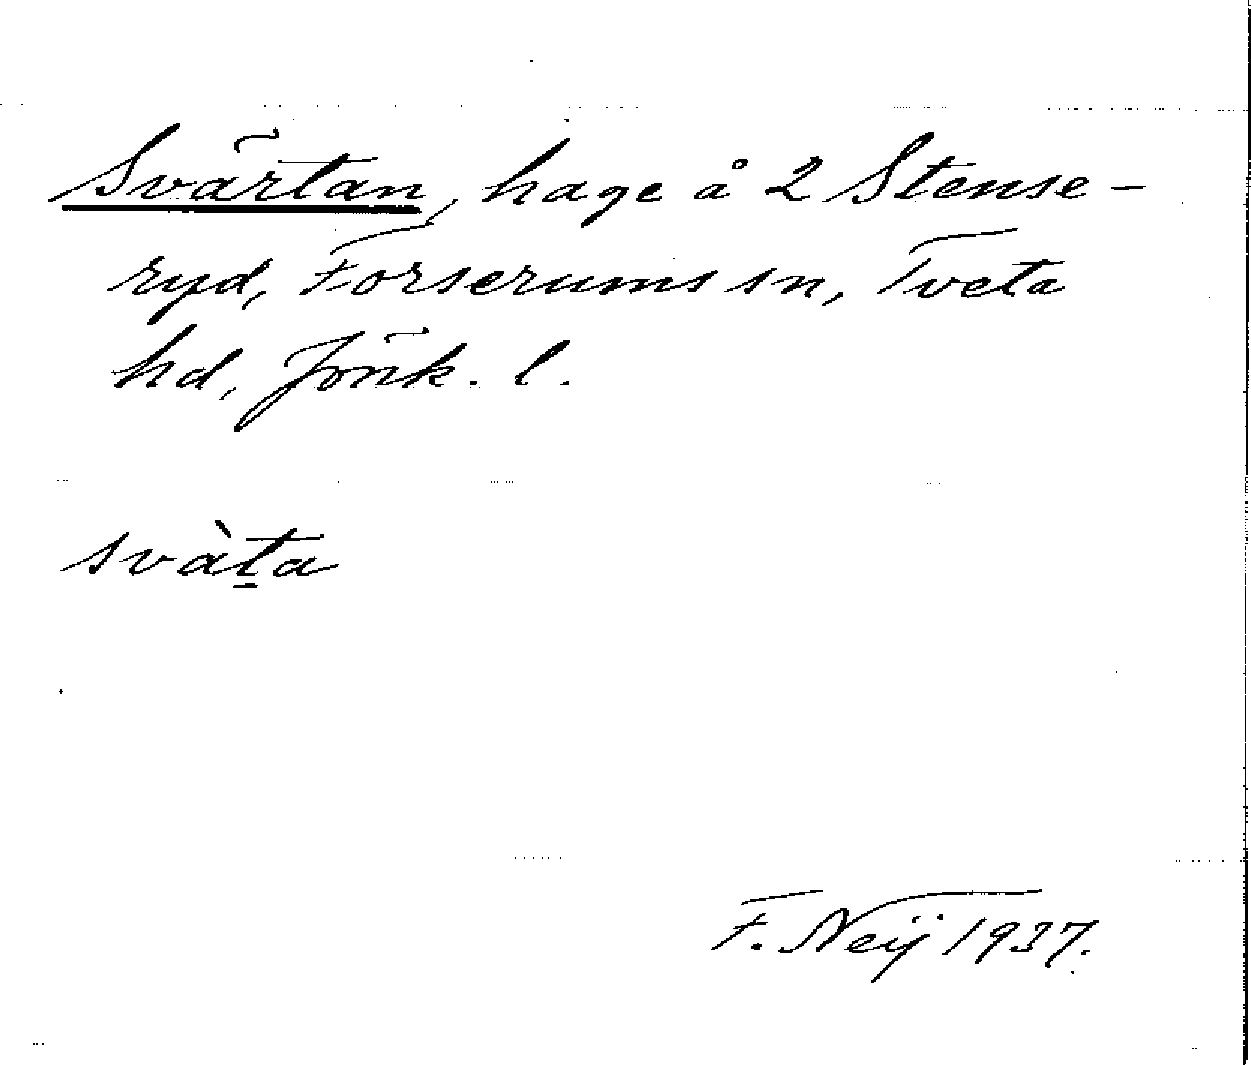 Svärtan, hage å 2 Stense-
ryd, Forserums sn, Tveta
hd, Jönk. l.
svàṯa
F. Neÿ 1937.